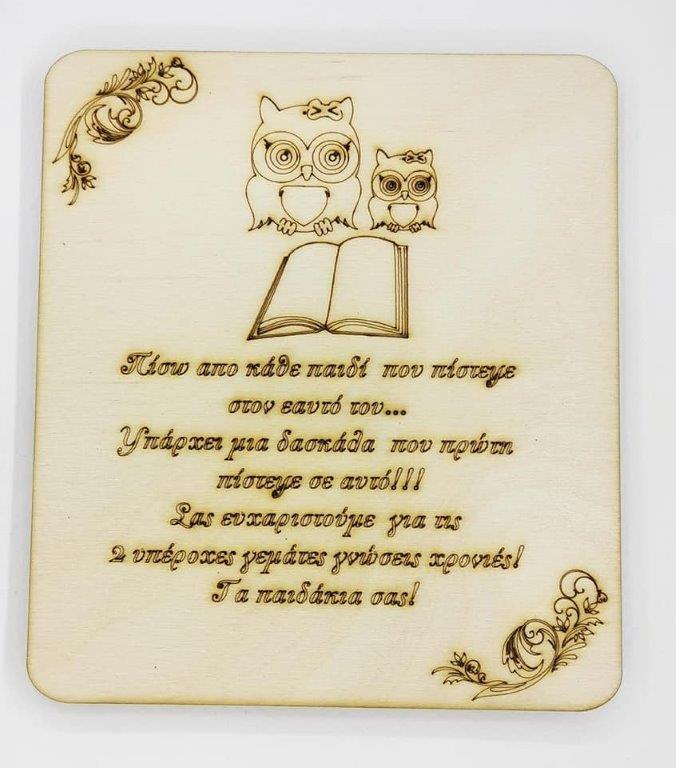 Πίσω απο κάθε παιδί που πίστεψε
στον εαυτό του...
Υπάρχει μια δασκάλα που πρώτη
πίστεψε σε αυτό!!!
Σας ευχαριστούμε για τις
2 υπέροχες γεμάτες γνώσεις χρονιές!
Τα παιδάκια σας!